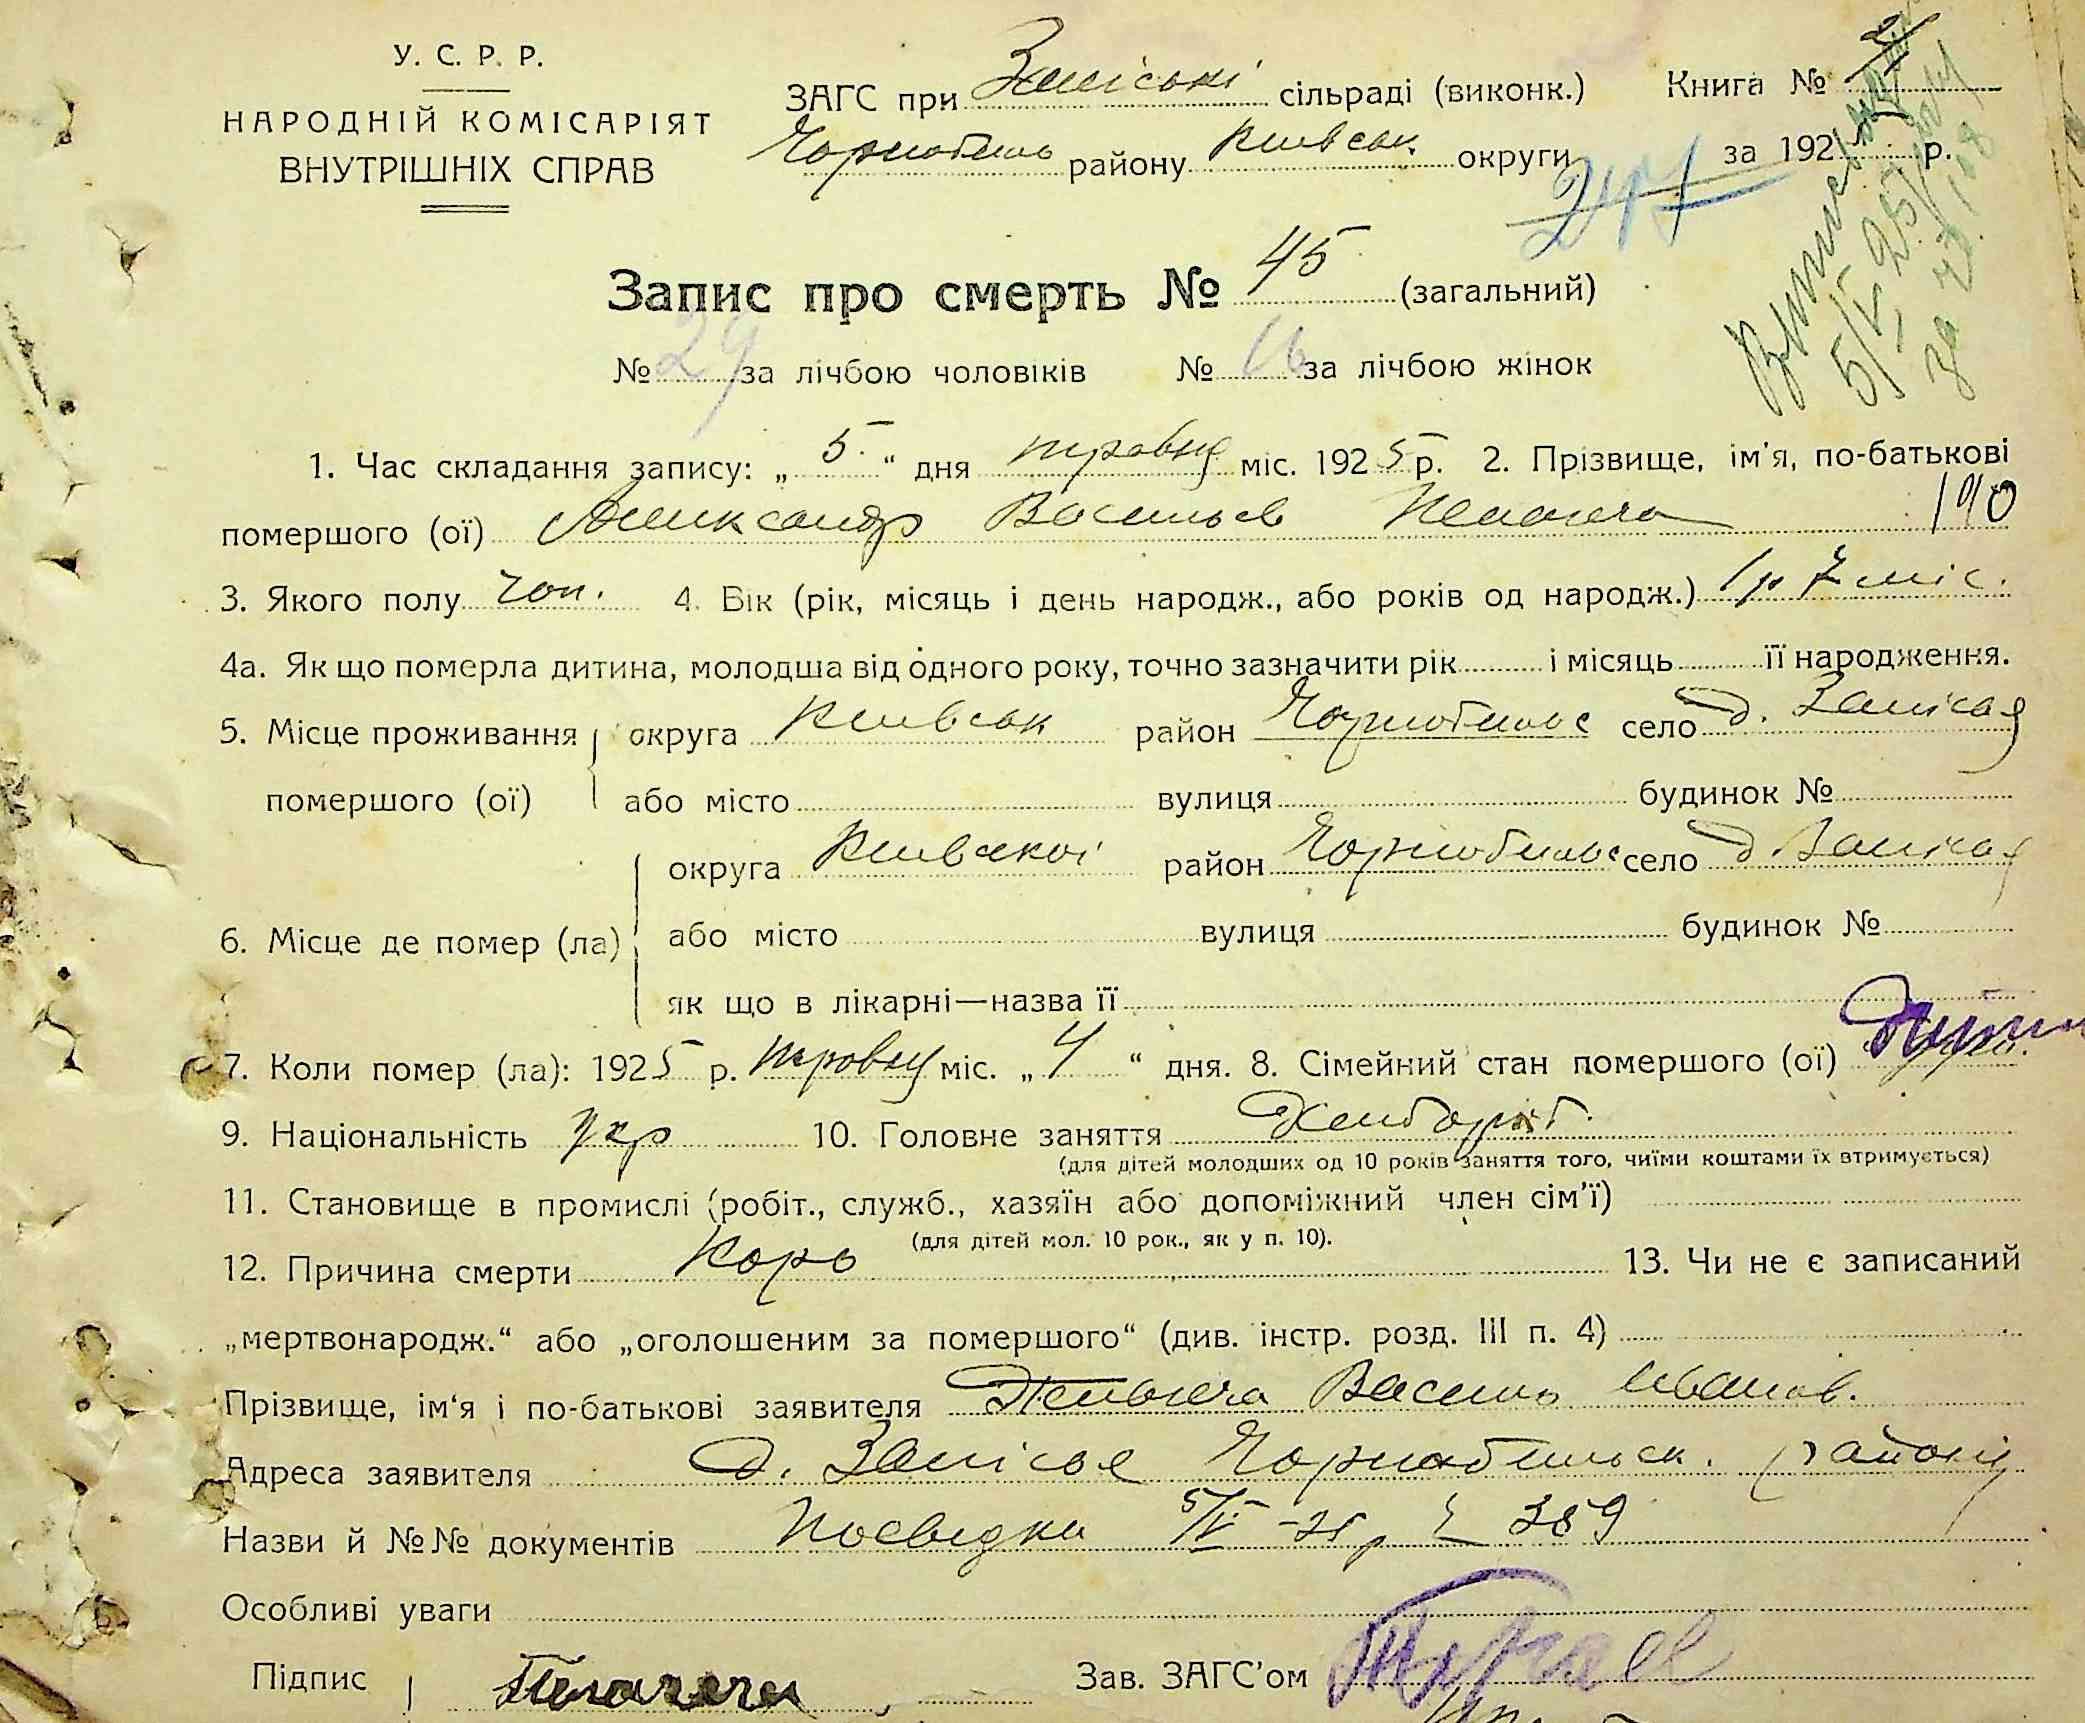 У. С. Р. Р.
НАРОДНІЙ КОМІСАРІЯТ
ВНУТРІШНІХ СПРАВ
ЗАГС при Заліські сільраді (виконк.) Книга №
Чорнобиль району Київськ. округи за 192 р.
Запис про смерть № 45 (загальний)
№ 29 за лічбою чоловіків № 16 за лічбою жінок
1. Час складання запису: „ 5 “ дня травня міс. 1925 р. 2. Прізвище, ім'я, по-батькові
помершого (ої) Александр Васильев 190
3. Якого полу чол. 4. Вік (рік, місяць і день народж., або років од народж.) 1 р 7 міс.
4а. Як що померла дитина, молодша від одного року, точно зазначити рік і місяць її народження.
5. Місце проживання округа Київськ район Чорнобильс село д. Залісся
помершого (ої) або місто вулиця будинок №
округа Київскоі район Чорнобильс село д Залісся
6. Місце де помер (ла) або місто вулиця будинок №
як що в лікарні—назва її
7. Коли помер (ла): 1925 р. травня міс. „ 4 “ дня. 8. Сімейний стан помершого (ої)
9. Національність Укр 10. Головне заняття Хлібороб.
(для дітей молодших од 10 років заняття того, чиїми коштами їх втримується)
11. Становище в промислі (робіт., служб., хазяїн або допоміжний член сім'ї)
(для дітей мол. 10 рок., як у п. 10).
12. Причина смерти Корь 13. Чи не є записаний
„мертвонародж.“ або „оголошеним за помершого“ (див. інстр. розд. III п. 4)
Прізвище, ім'я і по-батькові заявителя Василь Иванов.
Адреса заявителя д. Залісье Чорнобильск. району
Назви й №№ документів Посвідка 5/V-25 р 389
Особливі уваги
Підпис Зав. ЗАГС'ом